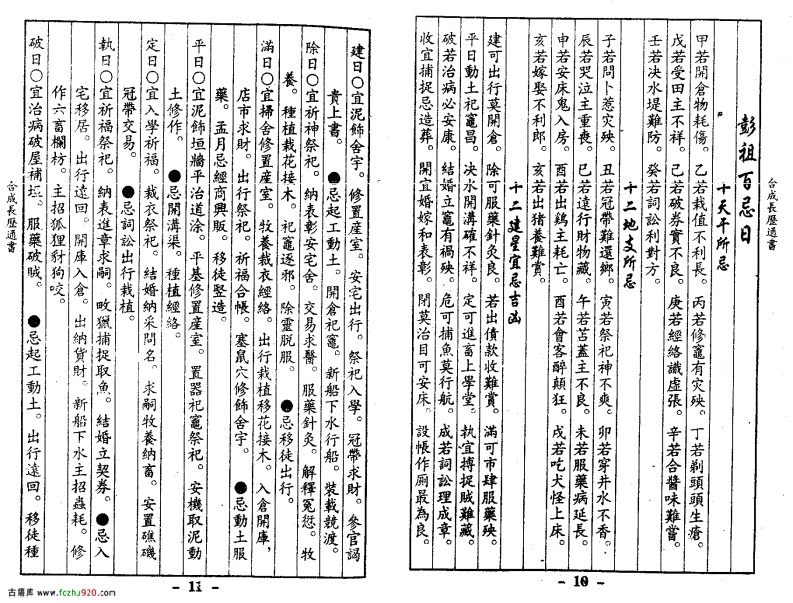 合成長歷通書
彭祖百忌日
十天干所忌
甲若開倉物耗傷。乙若栽值不利長。丙若修竈有灾殃。丁若剃頭頭生瘡。
戊若受田主不祥。己若破券實不良。庚若經絡識虛張。辛若合醬味難嘗。
壬若決水堤難防。癸若詞訟利對方。
十二地支所忌
子若問卜惹灾殃。丑若冠帶難還鄉。寅若祭祀神不爽。卯若穿井水不香。
辰若哭泣主重喪。巳若遠行財物藏。午若苫蓋主不良。未若服藥病延長。
申若安床鬼入房。酉若出鷄主耗亡。酉若會客醉顛狂。戌若吃犬怪上床。
亥若嫁娶不利郎。亥若出猪養難賞。
十二建星宜忌吉凶
建可出行莫開倉。除可服藥針灸良。若出債款收難賞。滿可市肆服藥殃。
平日動土祀竈昌。決水開溝確不祥。定可進畜上學堂。執宜搏捉賊難藏。
破若治病必安康。結婚立竈有禍殃。危可捕魚莫行航。成若詞訟理成章。
收宜捕捉忌造葬。開宜婚嫁和表彰。閉莫治目可安床。設帳作厠最為良。
- 10 -
建日○宜泥飾舍宇。修置産室。安宅出行。祭祀入學。冠帶求財。參官謁
貴上書。●忌起工動土。開倉祀竈。新船下水行船。裝載競渡。
除日○宜祈神祭祀。納表彰安宅舍。交易求醫。服藥針灸。解釋冤愆。牧
養。種植栽花接木。祀竈逐邪。除靈脱服。●忌移徒出行。
滿日○宜掃舍修置産室。牧養裁衣經絡。出行栽植移花接木。入倉開庫，
店市求財。出行祭祀。祈福合帳。塞鼠穴修飾舍宇。●忌動土服
藥。孟月忌經商興販。移徒竪造。
平日○宜泥飾垣牆平治道涂。平基修置産室。置器祀竈祭祀。安機取泥動
土修作。●忌開溝渠。種植經絡。
定日○宜入學祈福。裁衣祭祀。結婚納采問名。求嗣牧養納畜。安置碓磯
冠帶交易。●忌詞訟出行栽植。
執日○宜祈福祭祀。納表進章求嗣。畋獵捕捉取魚。結婚立契券。●忌入
宅移居。出行遠回。開庫入倉。出納貨財。新船下水主招蟲耗。修
作六畜欄枋。主招狐狸豺狗咬。
破日○宜治病破屋補坛。服藥破賊。●忌起工動土。出行遠回。移徒種
合成長歷通書
- 11 -
古籍库 www.fczhu920.com